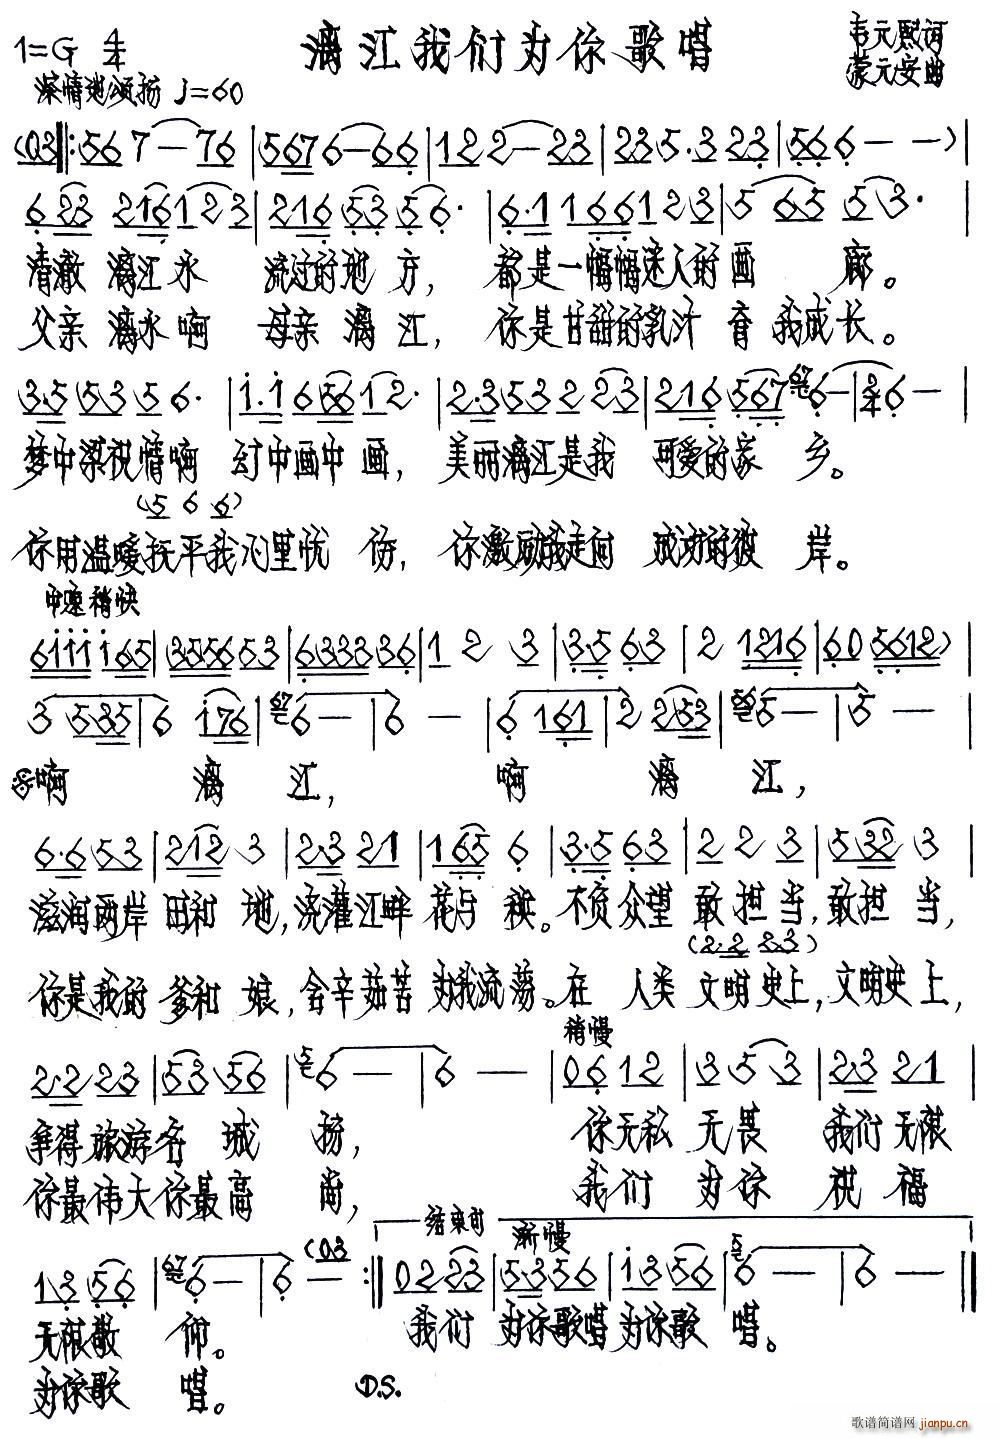 漓江我们为你歌唱
1=G 4/4
韦元熙词
蒙元安曲
深情地颂扬 ♩=60
(03‖: 567—76 | 5676—66 | 122—23 | 235·323 | 566——) |
623 2161 23 | 216 53 56· | 6·1 1661 23 | 5 65 53· |
清澈 漓江水 流过的地 方， 都是一幅幅迷人的画 廊。
父亲 漓水啊 母亲 漓 江， 你是甘甜的乳汁 育 我成长。
3·5 53 56· | 1·1 656 12· | 2·3 53 2 23 | 216 567 6— | 2/4 6— |
梦中深祝情啊 幻中画中 画， 美丽漓江是我 可爱的家 乡。
(5 6 6)
你用温暖抚平我心里忧 伤， 你激励我走向 成功的彼 岸。
中速稍快
6111 165 | 3556 53 | 6333 36 | 1 2 3 | 3·5 63 | 2 1216 | 60 5612) |
3 535 | 6 176 | 6— | 6 — | 6 161 | 2 253 | 5— | 5 — |
啊 漓 江， 啊 漓 江，
6·6 53 | 212 3 | 2·3 21 | 165 6 | 3·5 63 | 2 2 3 | 5 32 3 |
滋润两岸 田和 地，浇灌江畔 花与 秧。不负众望 敢 担 当，敢担 当，
(2·2 23)
你是我的 爹和 娘，含辛茹苦 为我流 荡。在 人类 文明史上，文明史上，
稍慢
2·2 23 | 53 56 | 6— | 6 — | 06 12 | 3 5 3 | 23 21 |
争得旅游名 城 扬， 你无私 无畏 我们无限
你最伟大你最高 尚， 我们 为你 祝 福
结束时 渐慢
13 56 | 6— | 6 — (03 :‖ 02 23 | 53 56 | 13 56 | 6— | 6 — ‖
无限敬 仰。 我们 为你歌唱为你歌 唱。
为你歌 唱。 D.S.
歌谱简谱网 jianpu.cn